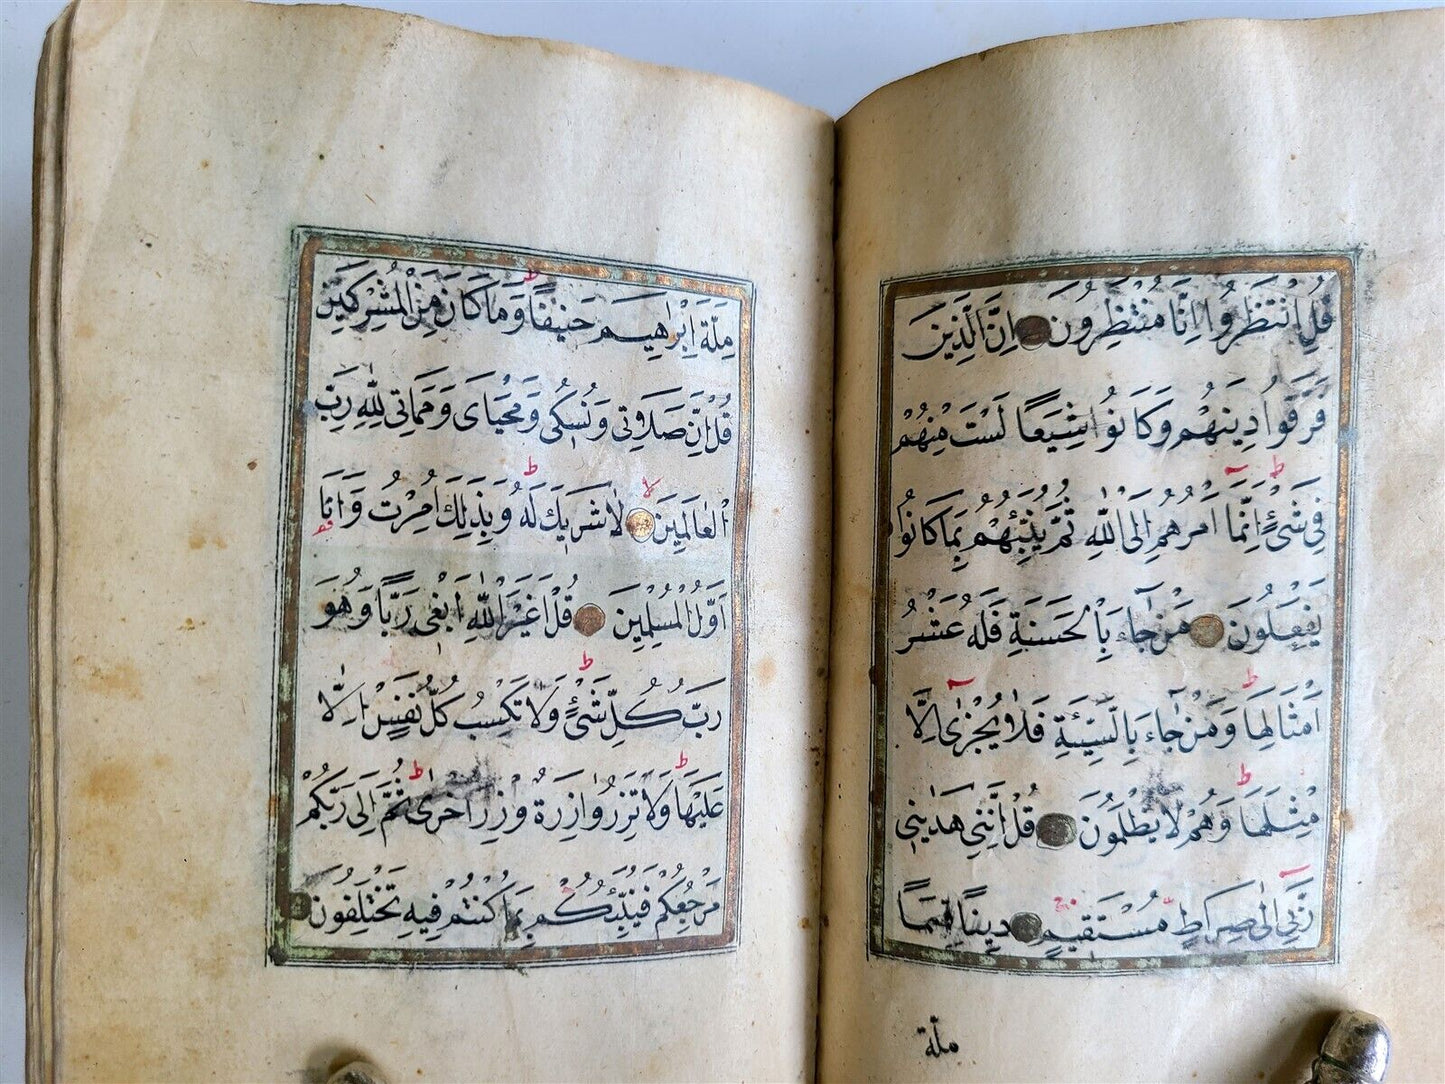 قُلِ انْتَظِرُوا اِنَّا مُنْتَظِرُونَ اِنَّ الَّذِينَ
فَرَّقُوا دِينَهُمْ وَكَانُوا شِيَعًا لَسْتَ مِنْهُمْ
فِى شَىْءٍ اِنَّمَا اَمْرُهُمْ اِلَى اللّٰهِ ثُمَّ يُنَبِّئُهُمْ بِمَا كَانُوا
يَفْعَلُونَ مَنْ جَاءَ بِالْحَسَنَةِ فَلَهُ عَشْرُ
اَمْثَالِهَا وَمَنْ جَاءَ بِالسَّيِّئَةِ فَلَا يُجْزٰى اِلَّا
مِثْلَهَا وَهُمْ لَا يُظْلَمُونَ قُلْ اِنَّنِى هَدٰينِى
رَبِّى اِلٰى صِرَاطٍ مُسْتَقِيمٍ دِينًا قِيَمًا
ملة
مِلَّةَ اِبْرٰهِيمَ حَنِيفًا وَمَا كَانَ مِنَ الْمُشْرِكِينَ
قُلْ اِنَّ صَلَاتِى وَنُسُكِى وَمَحْيَاىَ وَمَمَاتِى لِلّٰهِ رَبِّ
الْعَالَمِينَ لَا شَرِيكَ لَهُ وَبِذٰلِكَ اُمِرْتُ وَاَنَا
اَوَّلُ الْمُسْلِمِينَ قُلْ اَغَيْرَ اللّٰهِ اَبْغِى رَبًّا وَهُوَ
رَبُّ كُلِّ شَىْءٍ وَلَا تَكْسِبُ كُلُّ نَفْسٍ اِلَّا
عَلَيْهَا وَلَا تَزِرُ وَازِرَةٌ وِزْرَ اُخْرٰى ثُمَّ اِلٰى رَبِّكُمْ
مَرْجِعُكُمْ فَيُنَبِّئُكُمْ بِمَا كُنْتُمْ فِيهِ تَخْتَلِفُونَ